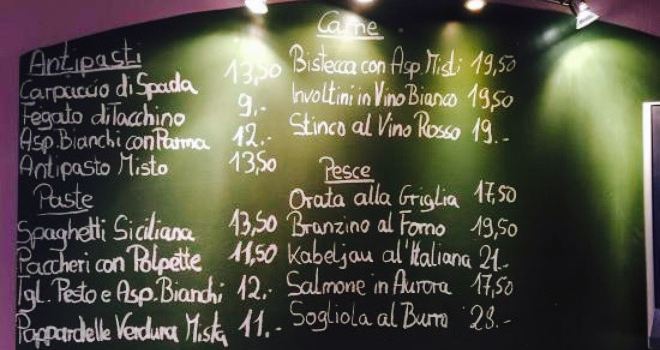 Antipasti
Carpaccio di Spada 13,50
Fegato di Tacchino 9.-
Asp. Bianchi con Parma 12.-
Antipasto Misto 13,50
Paste
Spaghetti Siciliana 13,50
Paccheri con Polpette 11,50
Tgl. Pesto e Asp. Bianchi 12.-
Pappardelle Verdura Mista 11.-
Carne
Bistecca con Asp. Misti 19,50
Involtini in Vino Bianco 19,50
Stinco al Vino Rosso 19.-
Pesce
Orata alla Griglia 17,50
Branzino al Forno 19,50
Kabeljau al'Italiana 21.-
Salmone in Aurora 17,50
Sogliola al Burro 28.-